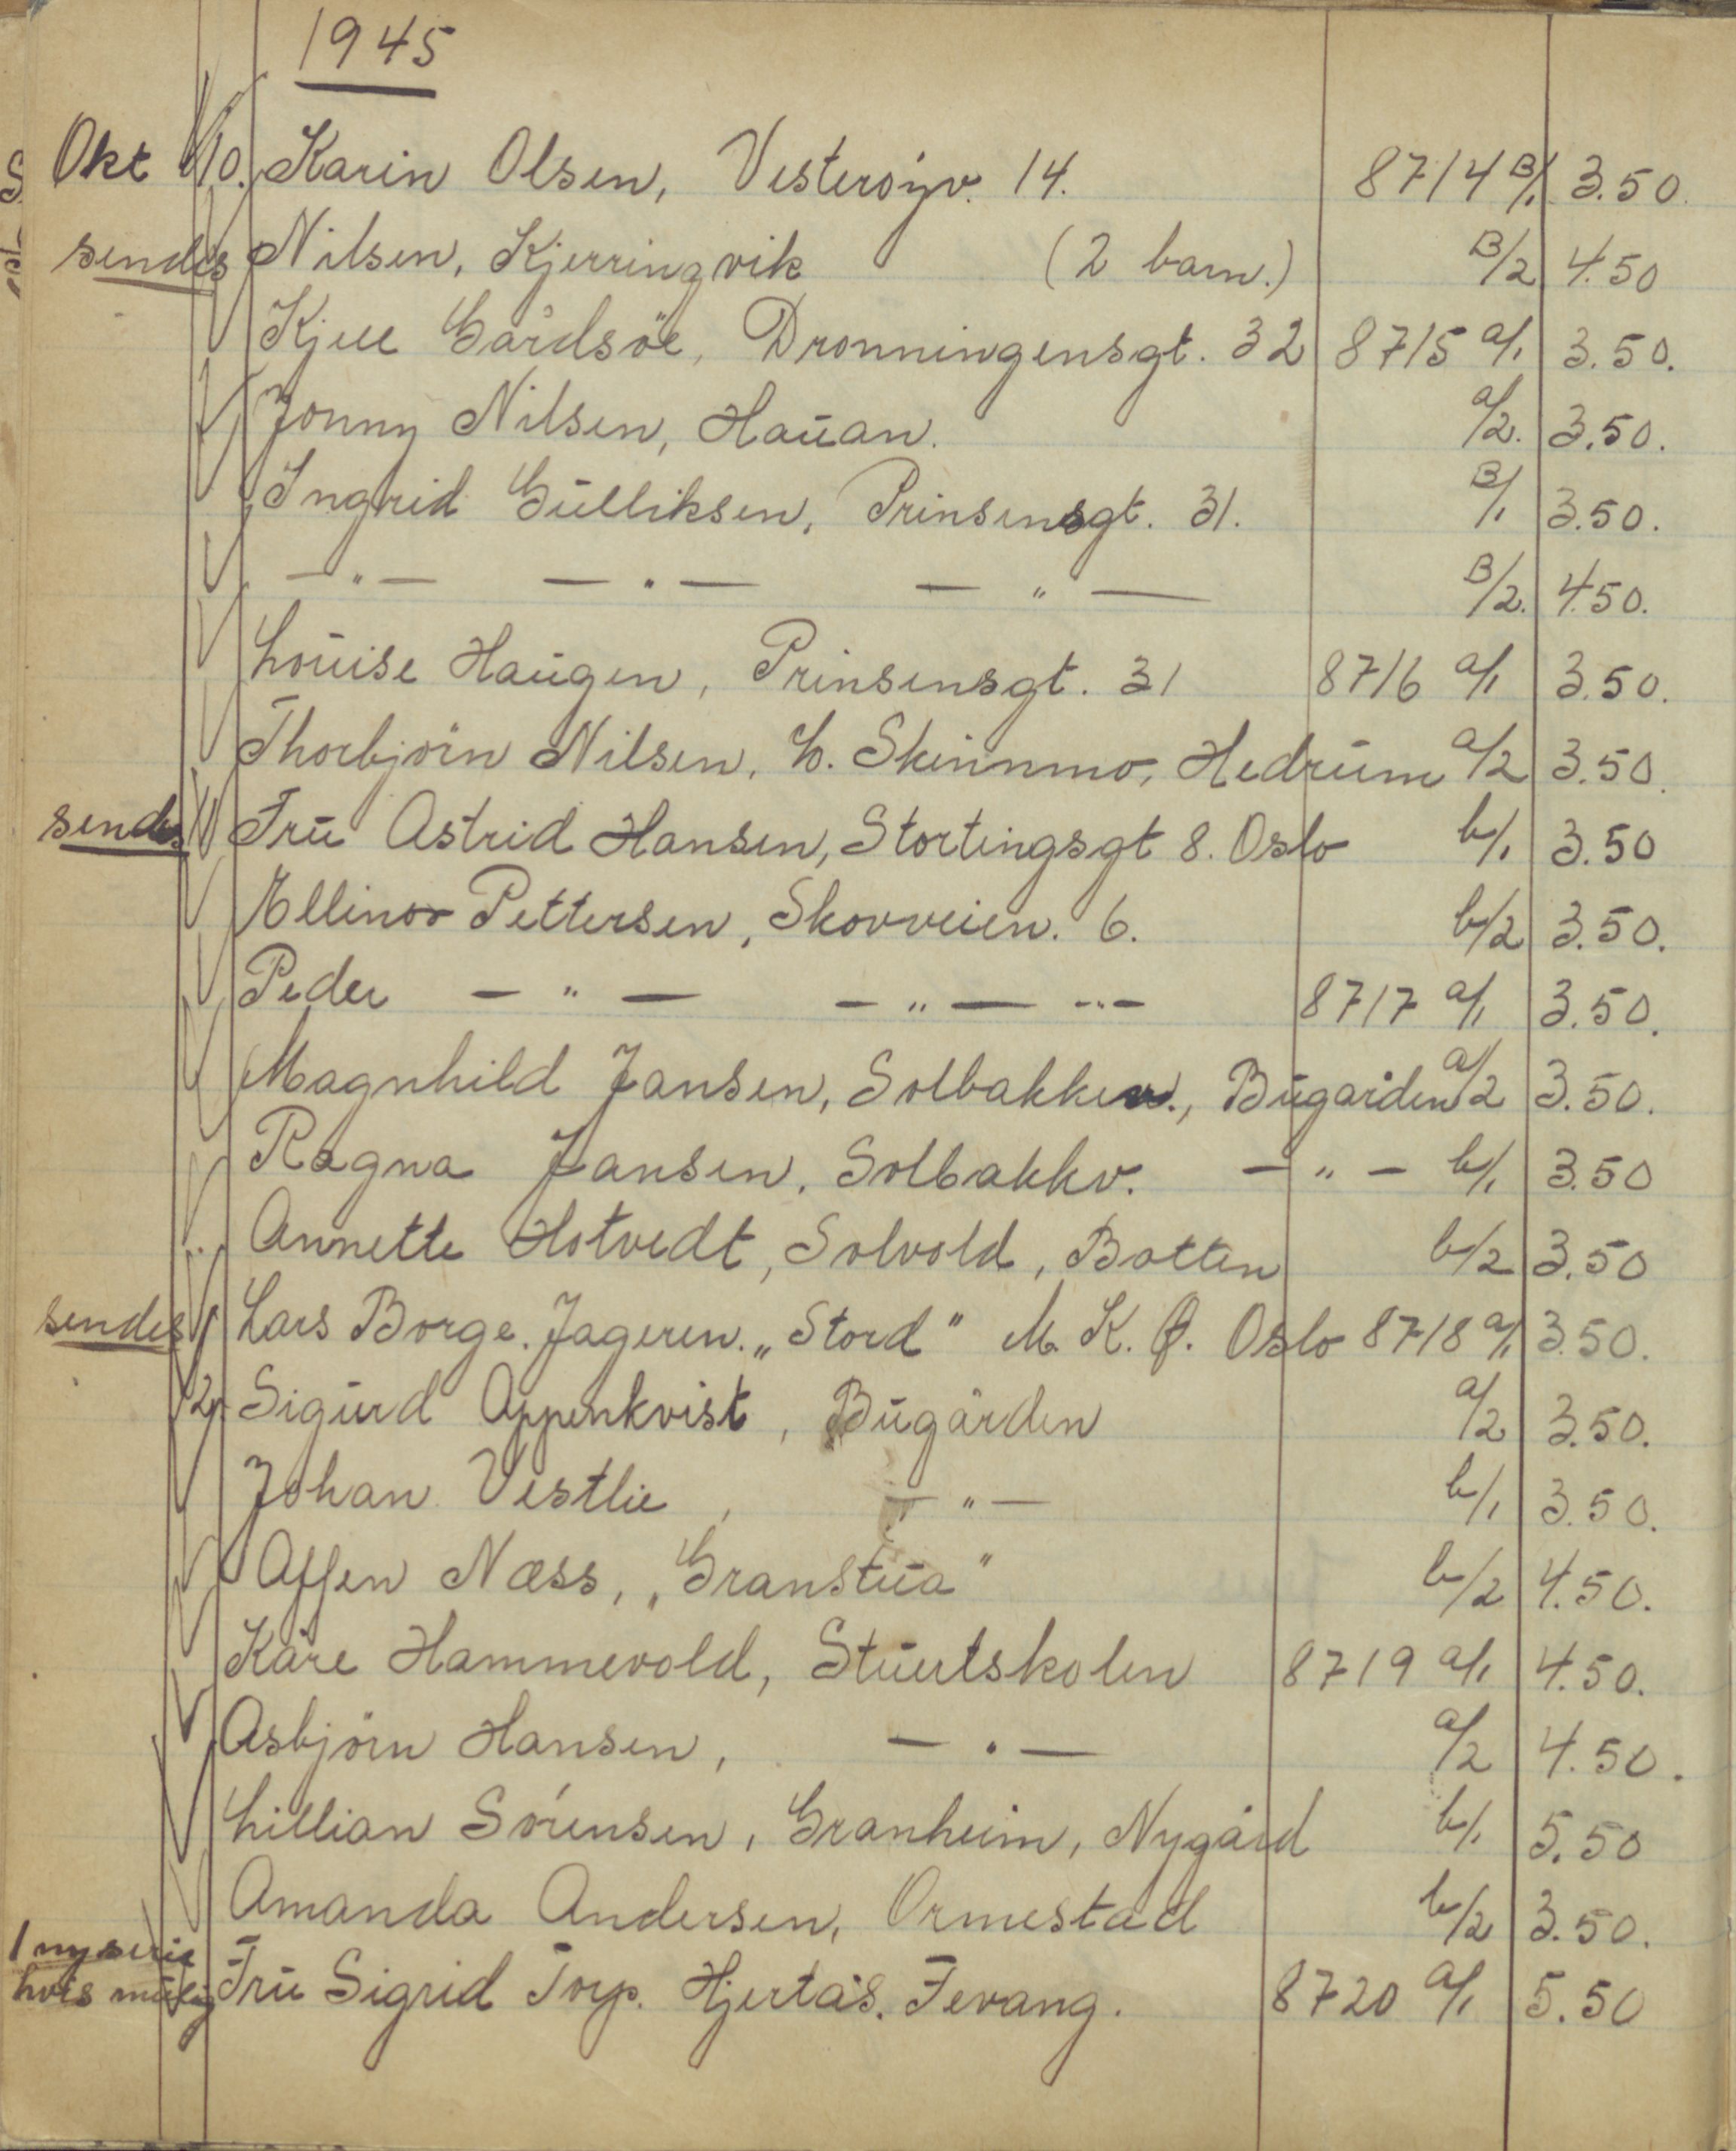 1945
Okt 1/10. Karin Olsen, Vesterøyv. 14. 8714 B/1 3.50.
sendes Nilsen, Kjerringvik (2 barn.) B/2 4.50
Kjell Gårdsöe, Dronningensgt. 32 8715 a/1 3.50.
Jonny Nilsen, Hauan. a/2. 3.50.
Ingrid Gulliksen, Prinsensgt. 31. B/1 3.50.
— " — — " — — " — B/2. 4.50.
Louise Haugen, Prinsensgt. 31 8716 a/1 3.50.
Thorbjörn Nilsen, L. Skinnmo, Hedrum a/2 3.50.
sendes Fru Astrid Hansen, Stortingsgt 8. Oslo b/1 3.50
Ellinor Pettersen, Skovveien. 6. b/2 3.50.
Peder — " — — " — — " — 8717 a/1 3.50.
Magnhild Jansen, Solbakkev., Bugården a/2 3.50.
Ragna Jansen, Solbakkv. — " — b/1 3.50
Annette Hotvedt, Solvold, Botten b/2 3.50
sendes Lars Borge. Jageren. „Stord" M. K. Ø. Oslo 8718 a/1 3.50.
2/ Sigurd Appenkvist, Bugården a/2 3.50.
Johan Vestlie, — " — b/1 3.50.
Affen Næss, „Granstua" b/2 4.50.
Kåre Hammevold, Stuertskolen 8719 a/1 4.50.
Asbjörn Hansen, — " — a/2 4.50.
Lillian Sörensen, Granheim, Nygård b/1 5.50
Amanda Andersen, Ormestad b/2 3.50.
1 ny serie
hvis mulig Fru Sigrid Torp. Hjertås. Fevang. 8720 a/1 5.50